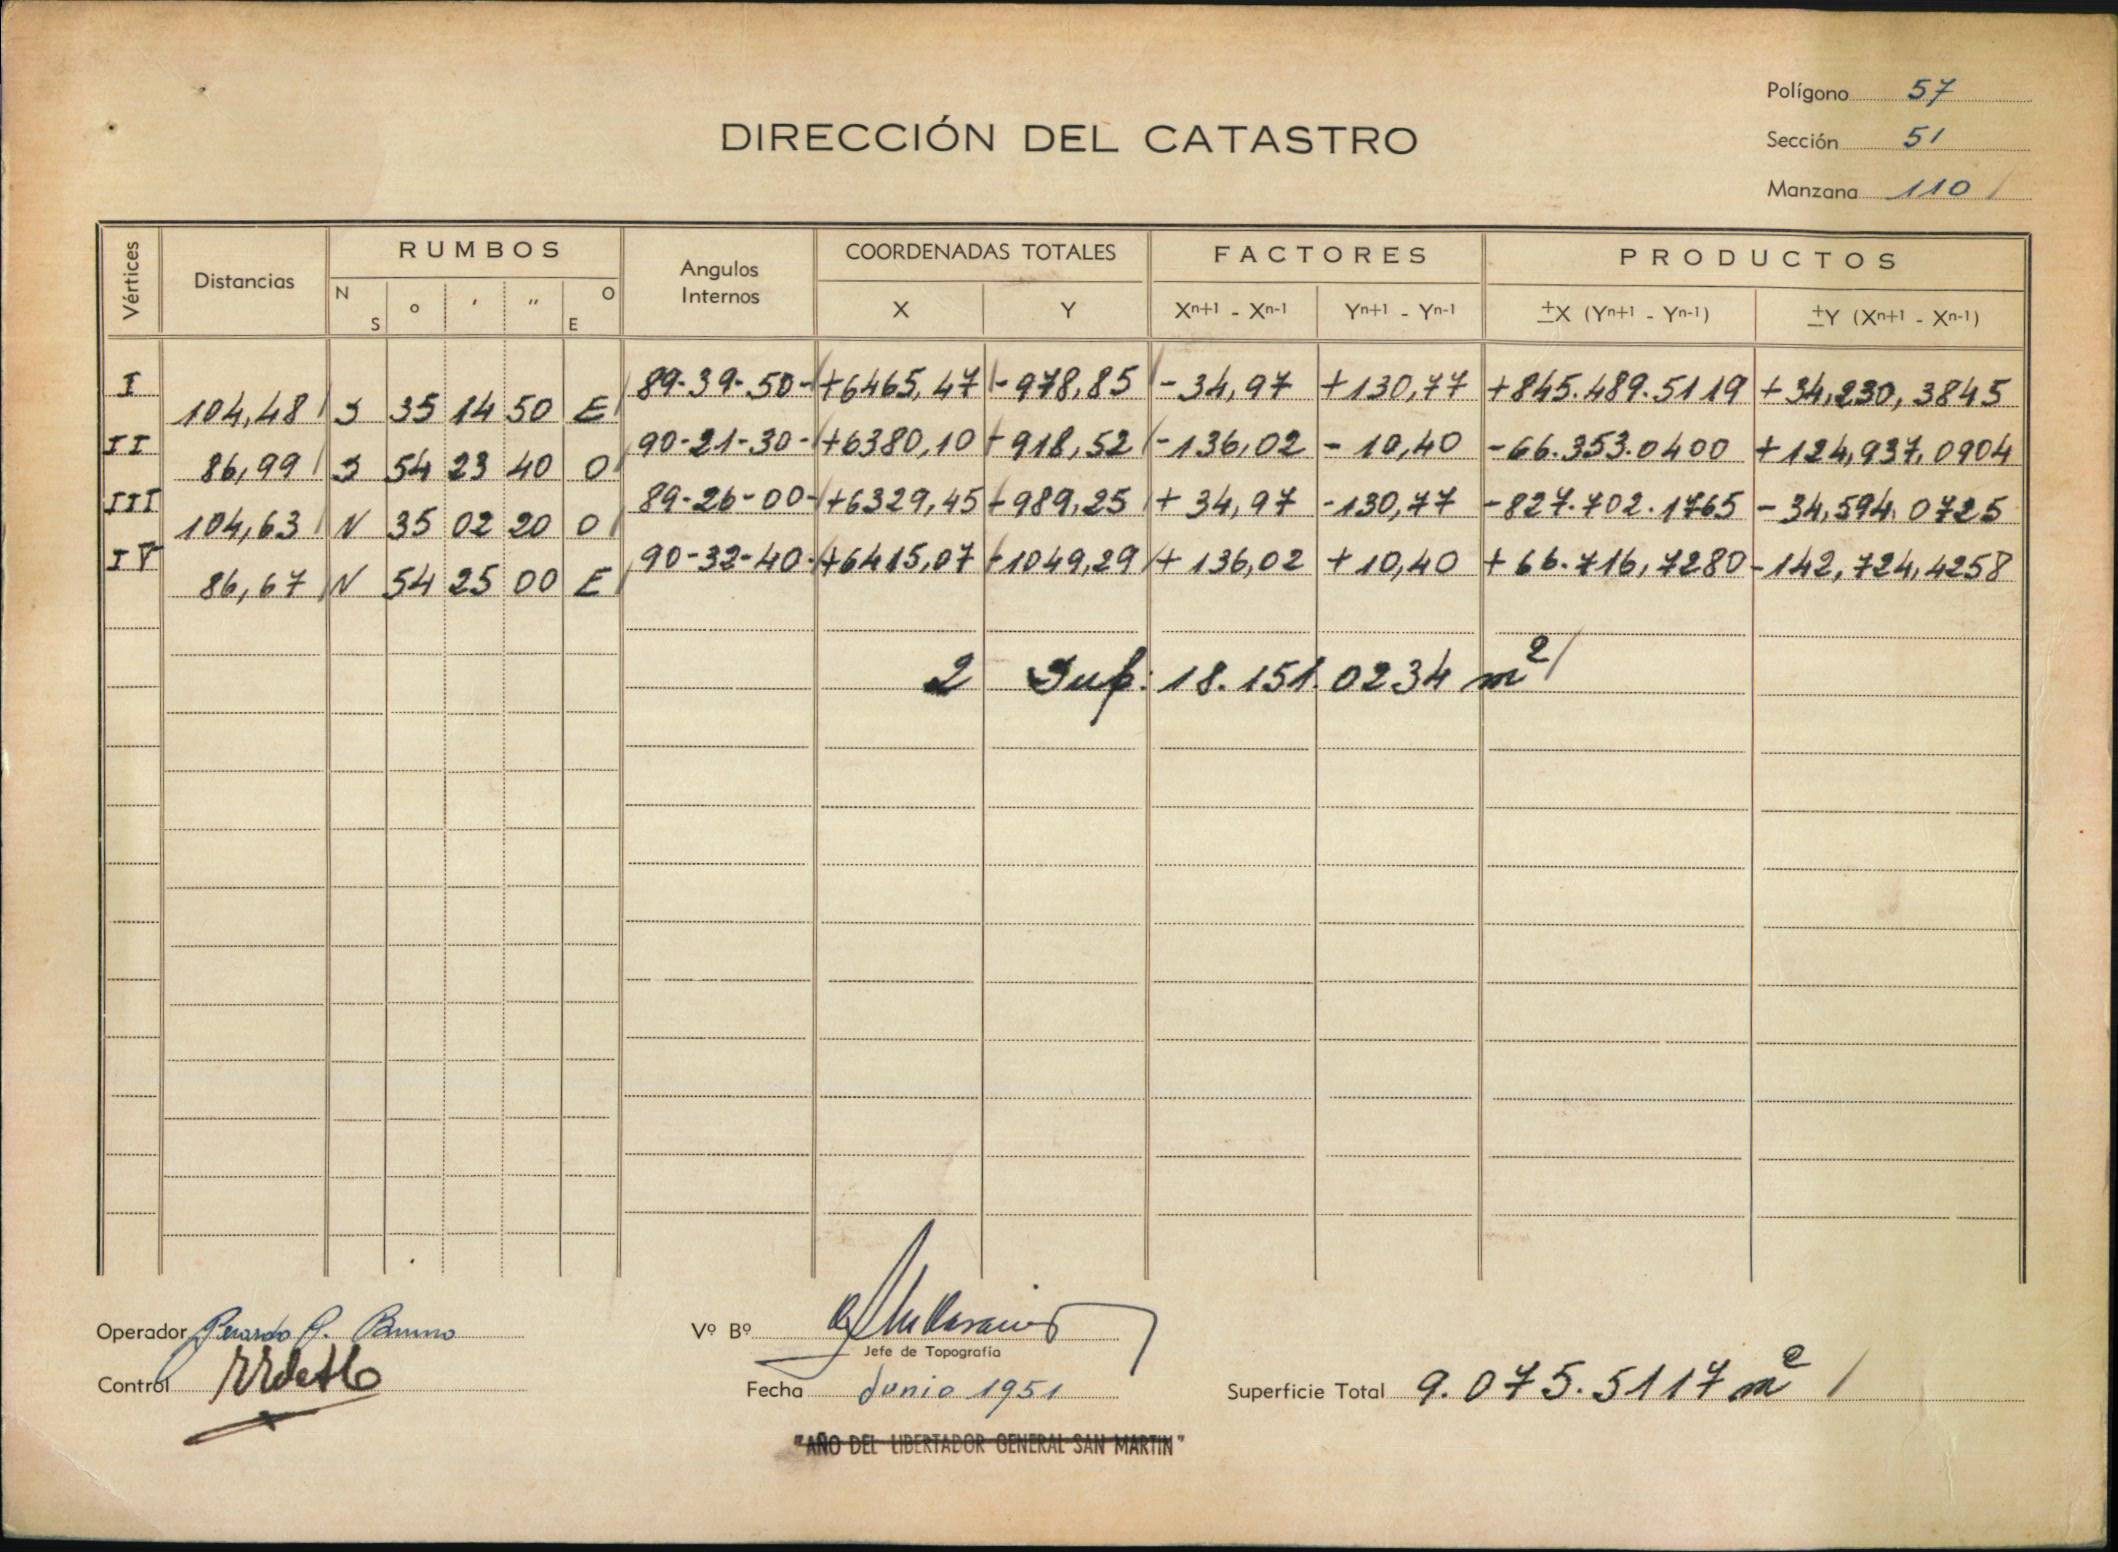 Polígono 57
DIRECCIÓN DEL CATASTRO
Sección 51
Manzana 110
Vértices Distancias RUMBOS Angulos Internos COORDENADAS TOTALES FACTORES PRODUCTOS
N S ° ' " O E X Y Xn+1 - Xn-1 Yn+1 - Yn-1 ±X (Yn+1 - Yn-1) ±Y (Xn+1 - Xn-1)
I 89-39-50- +6465,47 -978,85 -34,97 +130,77 +845.489.5119 +34,230,3845
104,48 S 35 14 50 E
II 90-21-30- +6380,10 -918,52 -136,02 -10,40 -66.353.0400 +124,937,0904
86,99 S 54 23 40 O
III 89-26-00- +6329,45 -989,25 +34,97 -130,77 -827.702.1765 -34,594.0725
104,63 N 35 02 20 O
IV 90-32-40- +6415,07 -1049,29 +136,02 +10,40 +66.716,7280 -142,724,4258
86,67 N 54 25 00 E
2 Sup: 18.151.0234 m²
Operador Gerardo Bruno
Vº Bº
Jefe de Topografía
Control
Fecha Junio 1951
Superficie Total 9.075.5117 m²
"AÑO DEL LIBERTADOR GENERAL SAN MARTIN"